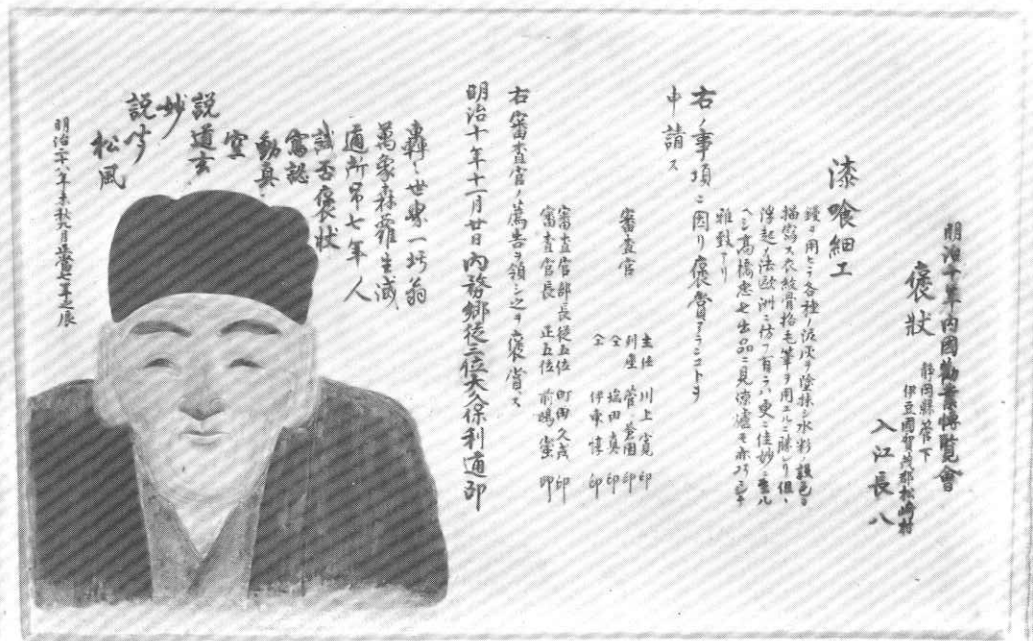 明治十年内國勧業博覧會
褒狀
静岡縣管下
伊豆國那賀郡松崎村
入江長八
漆喰細工
鏝ヲ用ヒテ各種ノ泥灰ヲ塗抹シ水彩ノ設色ヲ
描寫ス衣紋骨格毛筆ヲ用エルニ勝レリ但
浮起ノ法歐洲ニ仿フ有ラハ更ニ佳妙ニ至ル
ヘシ髙橋忠七出品ニ見
雅致アリ
右ノ事項ニ因リ褒賞アランコトヲ
申請ス
審査官
主任 川上寛 印
列座 菅蒼圃 印
仝 塩田真 印
仝 伊東惇 印
審査官部長従五位 町田久成 印
審査官長 正五位 前嶋密 印
右審査官ノ薦告ヲ領シ之ヲ褒賞ス
明治十年十一月廿日内務卿従三位大久保利通印
轟々世界一朽翁
萬象森羅生滅
通所
七年人
誠否褒狀
寫認
動真
空
説道玄
妙
説
松風
明治二十八年未秋九月